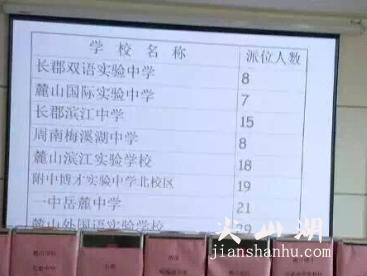 学校名称 派位人数
长郡双语实验中学 8
麓山国际实验中学 7
长郡滨江中学 15
周南梅溪湖中学 8
麓山滨江实验学校 18
附中博才实验中学北校区 19
一中岳麓中学 21
麓山外国语实验中学 29
火山湖
jianshanhu.com